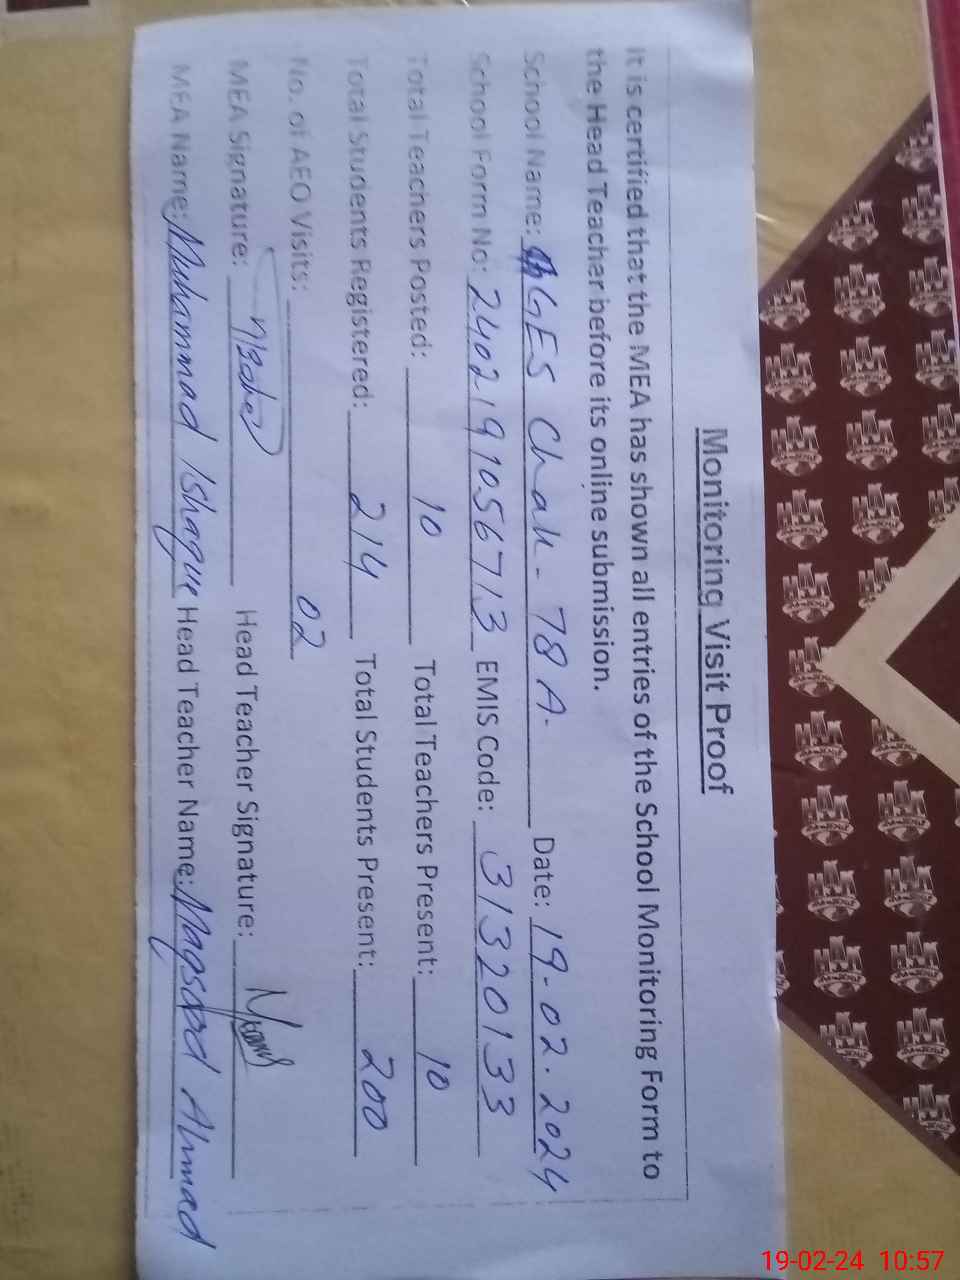 Monitoring Visit Proof
It is certified that the MEA has shown all entries of the School Monitoring Form to
the Head Teacher before its online submission.
School Name: GES Chak-78 A. Date: 19-02.2024
School Form No: 2402191056713 EMIS Code: 31320133
Total Teachers Posted: 10 Total Teachers Present: 10
Total Students Registered: 214 Total Students Present: 200
No. of AEO Visits: 02
MEA Signature: Head Teacher Signature:
MEA Name: Muhammad Ishaque Head Teacher Name: Maqsood Ahmad
19-02-24 10:57